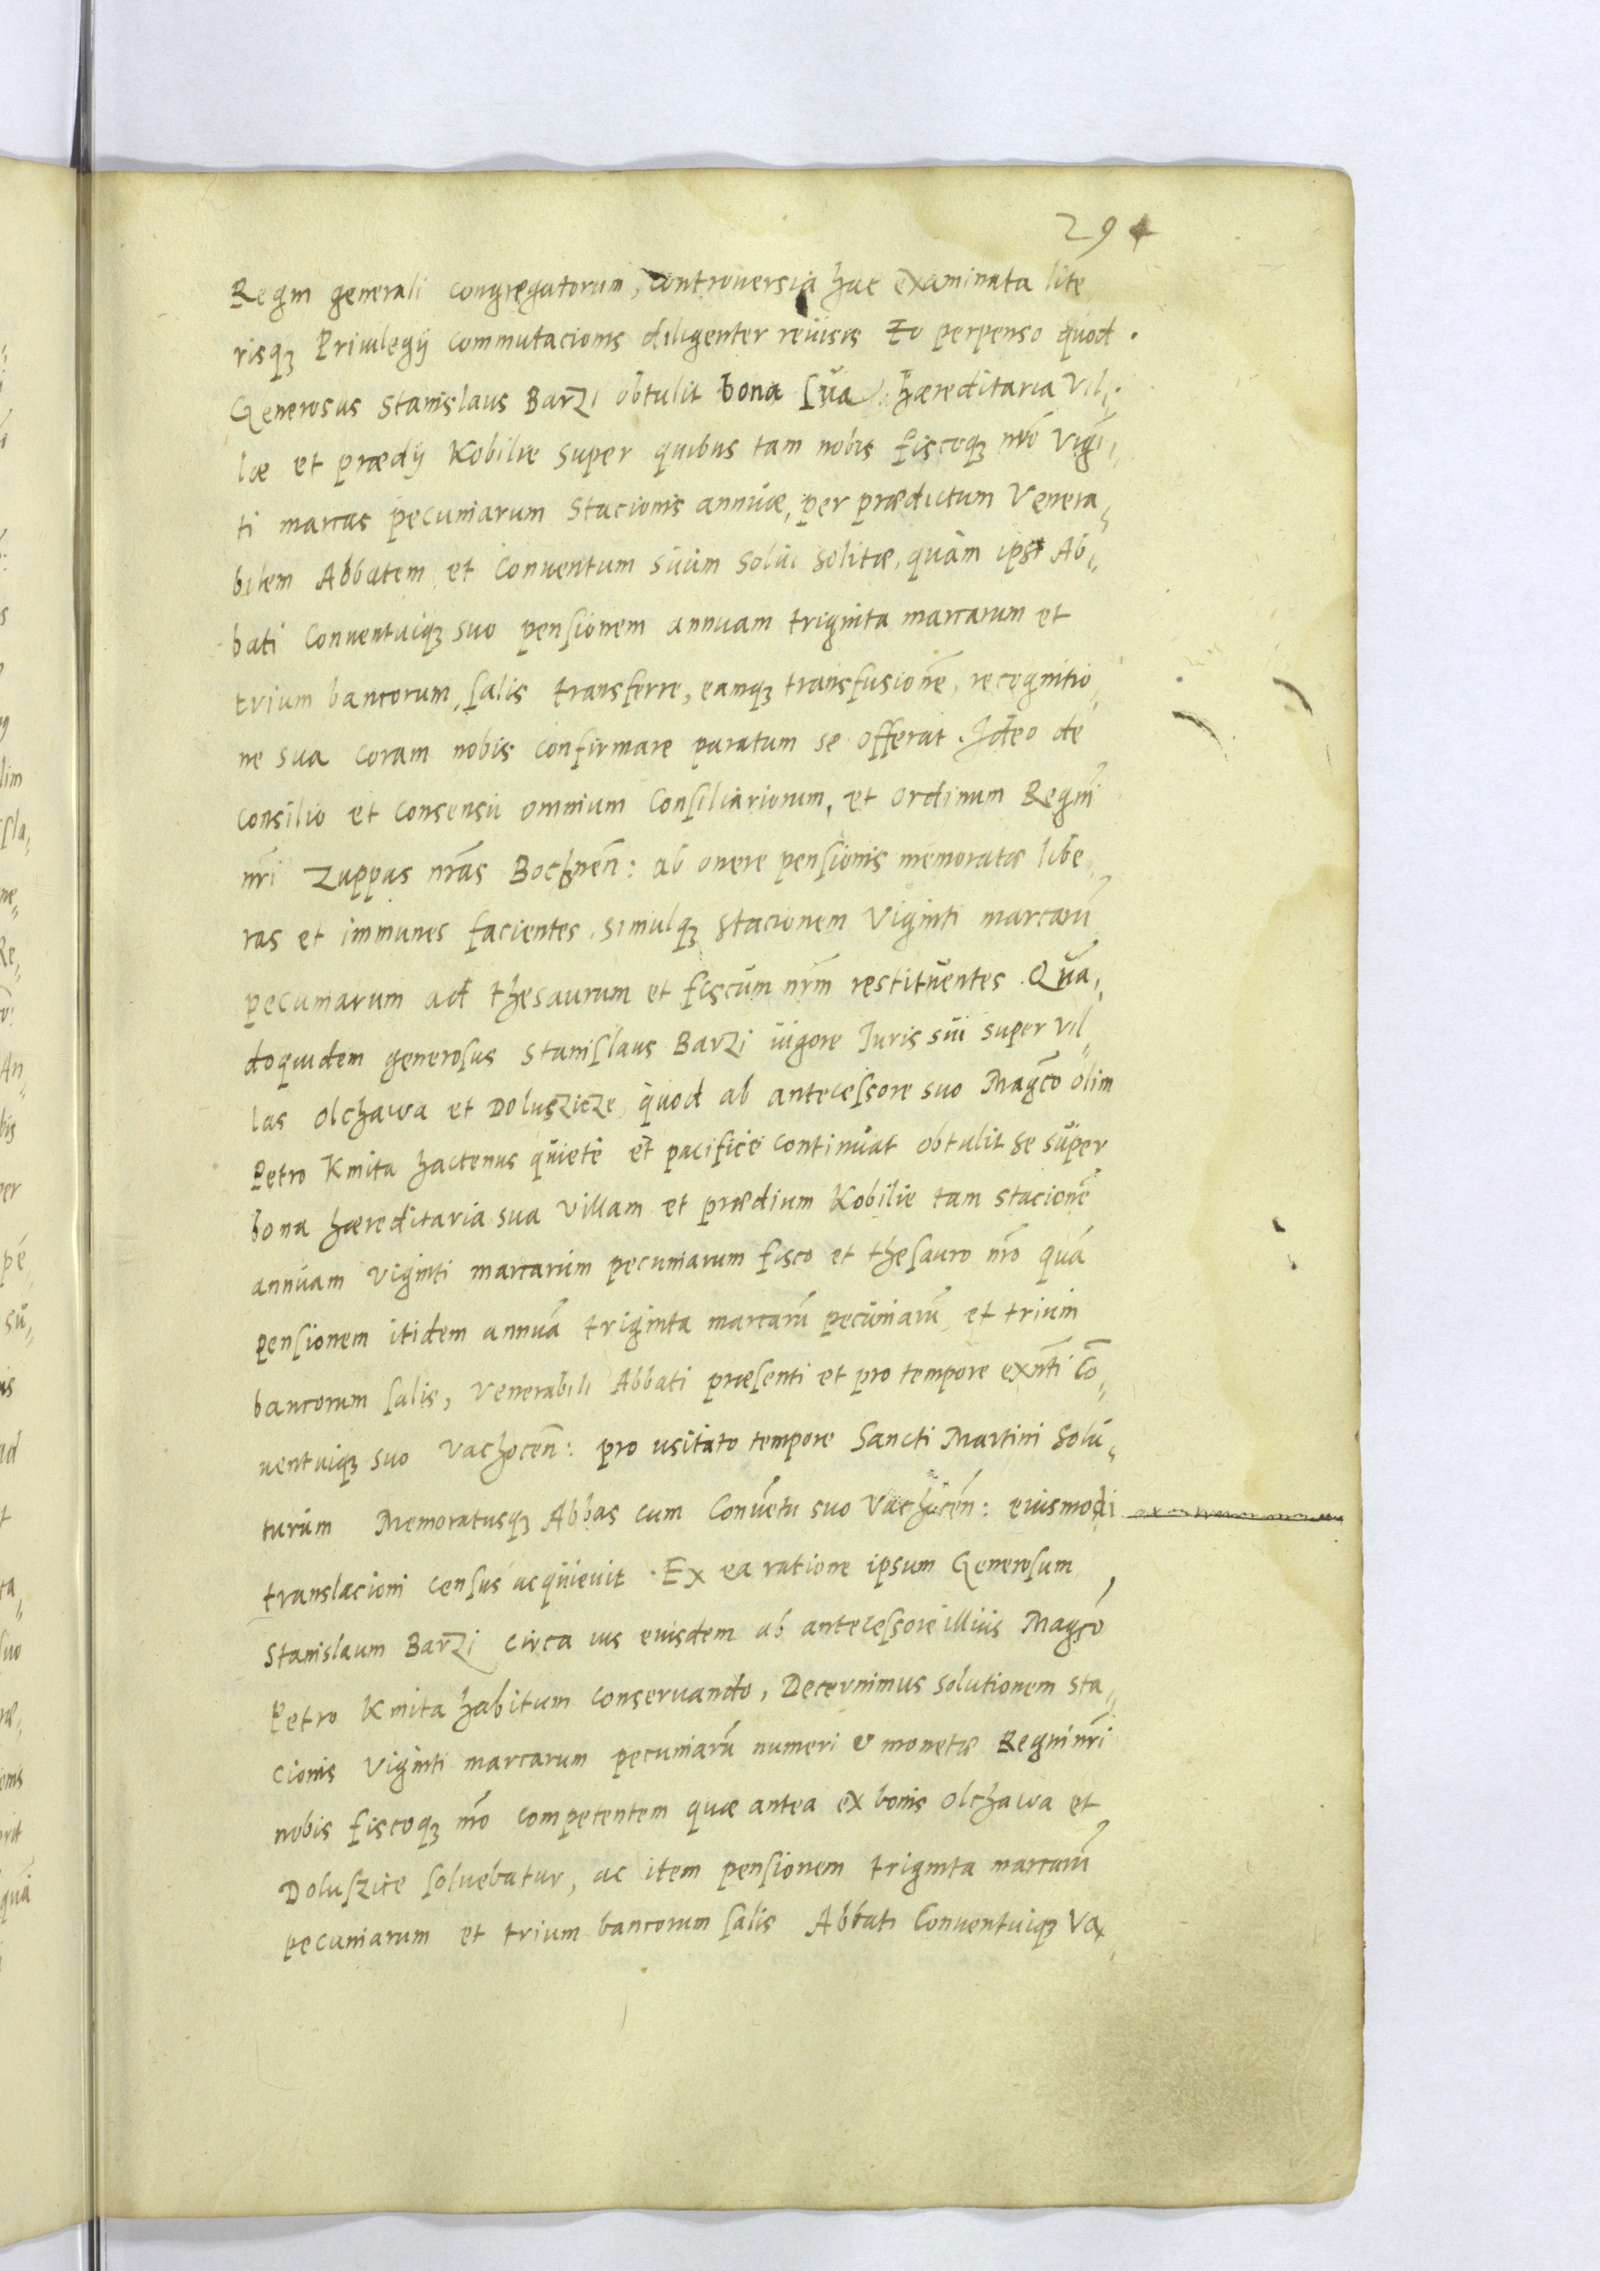 294
Regni generali congregatorum, controversia hac examinata lite
risq3 Privilegij commutacionis diligenter revisis Eo perpenso quod.
Generosus Stanislaus Barzi obtulit bona sua hæreditaria Vil-
læ et prædij Kobilie super quibus tam nobis fiscoq3 nr̃o Vigi-
ti marcas pecuniarum Stacionis annuæ, per prædictum Venera-
bilem Abbatem et Conventum suum solui solitæ, quàm ipsi Ab-
bati Conventuiq3 suo pensionem annuam triginta marcarum et
trium bancorum salis transferre, eamq3 transfusionẽ, recognitio
ne sua coram nobis confirmare paratum se offerat. Ideo de
consilio et consensu omnium Consiliariorum, et ordinum Regni
nr̃i Zuppas nr̃as Bochneñ: ab onere pensionis memoratæ libe-
ras et immunes facientes, simulq3 stacionem Viginti marcarũ
pecuniarum ad thesaurum et fiscum nr̃m restituentes. Qua-
doquidem generosus Stanislaus Barzi uigore Iuris sui super vil-
las Olchawa et Doluszicze, quod ab antecessore suo Magco olim
Petro Kmita hactenus quiete et pacifice continuat obtulit se super
bona hæreditaria sua Villam et prædium Kobilie tam stacionẽ
annuam viginti marcarum pecuniarum fisco et thesauro nr̃o quã
pensionem itidem annuã triginta marcarũ pecuniarũ et trium
bancorum salis, Venerabili Abbati præsenti et pro tempore exñti Cõ-
uentuiq3 suo Vachoceñ: pro usitato tempore Sancti Martini Solu-
turum Memoratusq3 Abbas cum Conuẽtu suo Vachoceñ: eiusmodi
translacioni census acquieuit. Ex ea ratione ipsum Generosum
Stanislaum Barzi circa ius euisdem ab antecessore illius Magco
Petro Kmita habitum conseruando, Decernimus solutionem sta-
cionis Viginti marcarum pecuniarũ numeri & monetæ Regni nr̃i
nobis fiscoq3 nr̃o competentem quæ antea ex bonis Olchawa et
Doluszice soluebatur, ac item pensionem triginta marcarũ
pecuniarum et trium bancorum salis Abbati Conventuiq3 Va-